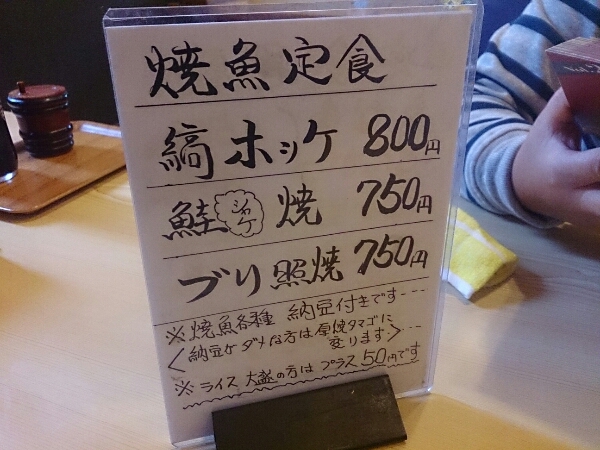 焼魚定食
縞ホッケ 800円
鮭 シャケ 焼 750円
ブリ照焼 750円
※焼魚各種 納豆付きです・・・
〈納豆ケダメな方は厚焼タマゴに
変ります〉・・・
※ライス大盛の方はプラス50円です